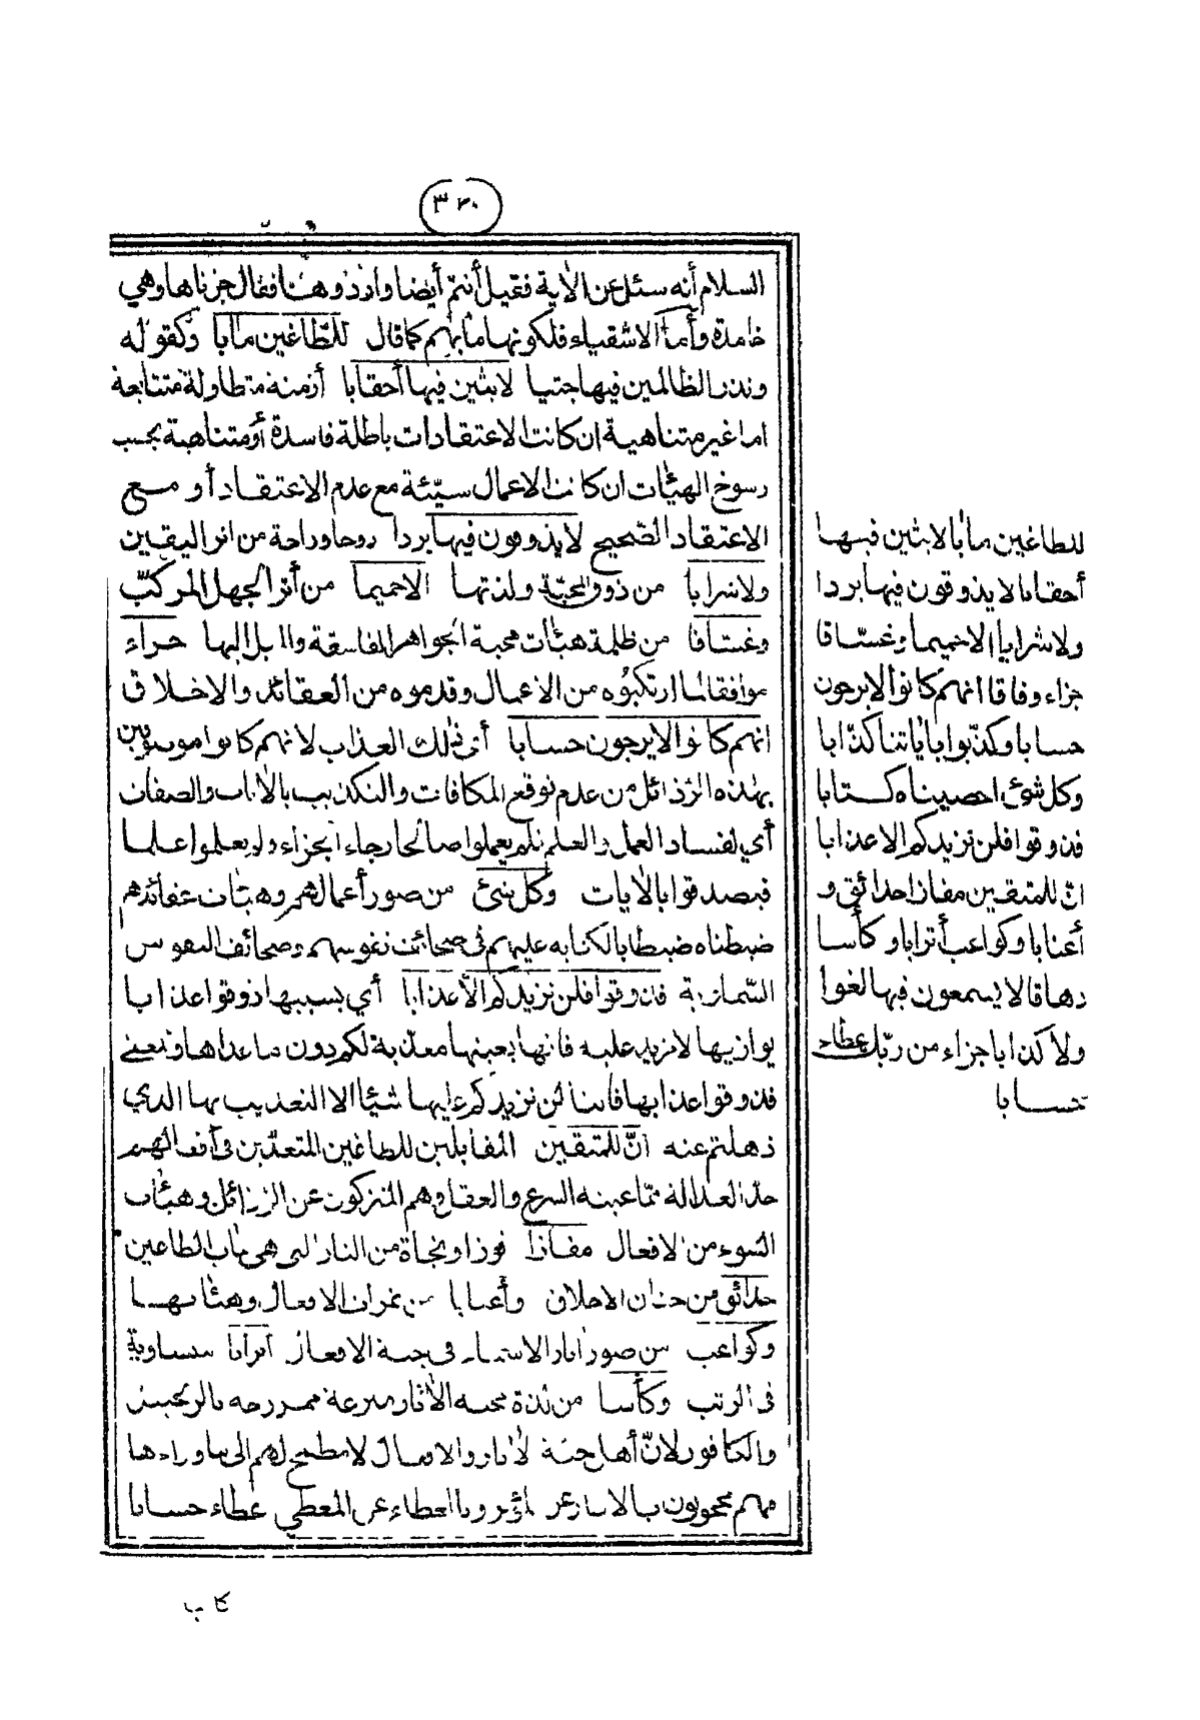 السلام أنه سئل عن الآية فقيل أنتم أيضا واردوها فقال جزناها وهي
خامدة وأما الاشقياء فلكونها مآبهم كما قال للطاغين مآبا وكقوله
ونذر الظالمين فيها جثيا لابثين فيها أحقابا أزمنة متطاولة متتابعة
اما غير متناهية ان كانت الاعتقادات باطلة فاسدة أو متناهية بحسب
رسوخ الهيئات ان كانت الاعمال سيئة مع عدم الاعتقاد أو مع
الاعتقاد الصحيح لا يذوقون فيها بردا روحا وراحة من اثر اليقين
ولا شرابا من ذوق المحبة ولذتها الا حميما من أثر الجهل المركب
وغساقا من ظلمة هيئات محبة الجواهر الفاسقة والميل اليها جزاء
موافقا لما ارتكبوه من الاعمال وقدموه من العقائد والاخلاق
انهم كانوا لا يرجون حسابا أي ذلك العذاب لانهم كانوا موصوفين
بهذه الرذائل من عدم توقع المكافات والتكذيب بالآيات والصفات
أي لفساد العمل والعلم فلم يعملوا صالحا رجاء الجزاء ولم يعلموا علما
فيصدقوا بالآيات وكل شئ من صور أعمالهم وهيئات عقائدهم
ضبطناه ضبطا بالكتابة عليهم في صحائف نفوسهم وصحائف النفوس
السماوية فذوقوا فلن نزيدكم الا عذابا أي بسببها ذوقوا عذابا
يوازيها لا مزيد عليه فانها بعينها معذبة لكم دون ما عداها والمعنى
فذوقوا عذابها فاننا لن نزيدكم عليها شيأ الا التعذيب بها الذي
ذهلتم عنه انّ للمتقين المقابلين للطاغين المتعدّين في أفعالهم
حدّ العدالة مما عينه الشرع والعقل وهم المتزكون عن الرذائل وهيئات
السوء من الافعال مفازا فوزا ونجاة من النار التي هي مآب الطاغين
حدائق من جنان الاخلاق وأعنابا من ثمرات الافعال وهيئاتها
وكواعب من صور آثار الاسماء في جنة الافعال أترابا متساوية
في الرتب وكأسا من لذة محبة الآثار مترعة ممزوجة بالزنجبيل
والكافور لانّ أهل جنة الآثار والافعال لا مطمح لهم الى ما وراءها
فهم محجوبون بالآثار عن المؤثر وبالعطاء عن المعطي عطاء حسابا
كا ب
للطاغين مآبا لابثين فيها
أحقابا لا يذوقون فيها بردا
ولا شرابا الا حميما وغسّاقا
جزاء وفاقا انهم كانوا لا يرجون
حسابا وكذّبوا بآياتنا كذّابا
وكل شئ احصيناه كتابا
فذوقوا فلن نزيدكم الا عذابا
انّ للمتقين مفازا حدائق و
أعنابا وكواعب أترابا وكأسا
دهاقا لا يسمعون فيها لغوا
ولا كذابا جزاء من ربّك عطاء
حسابا